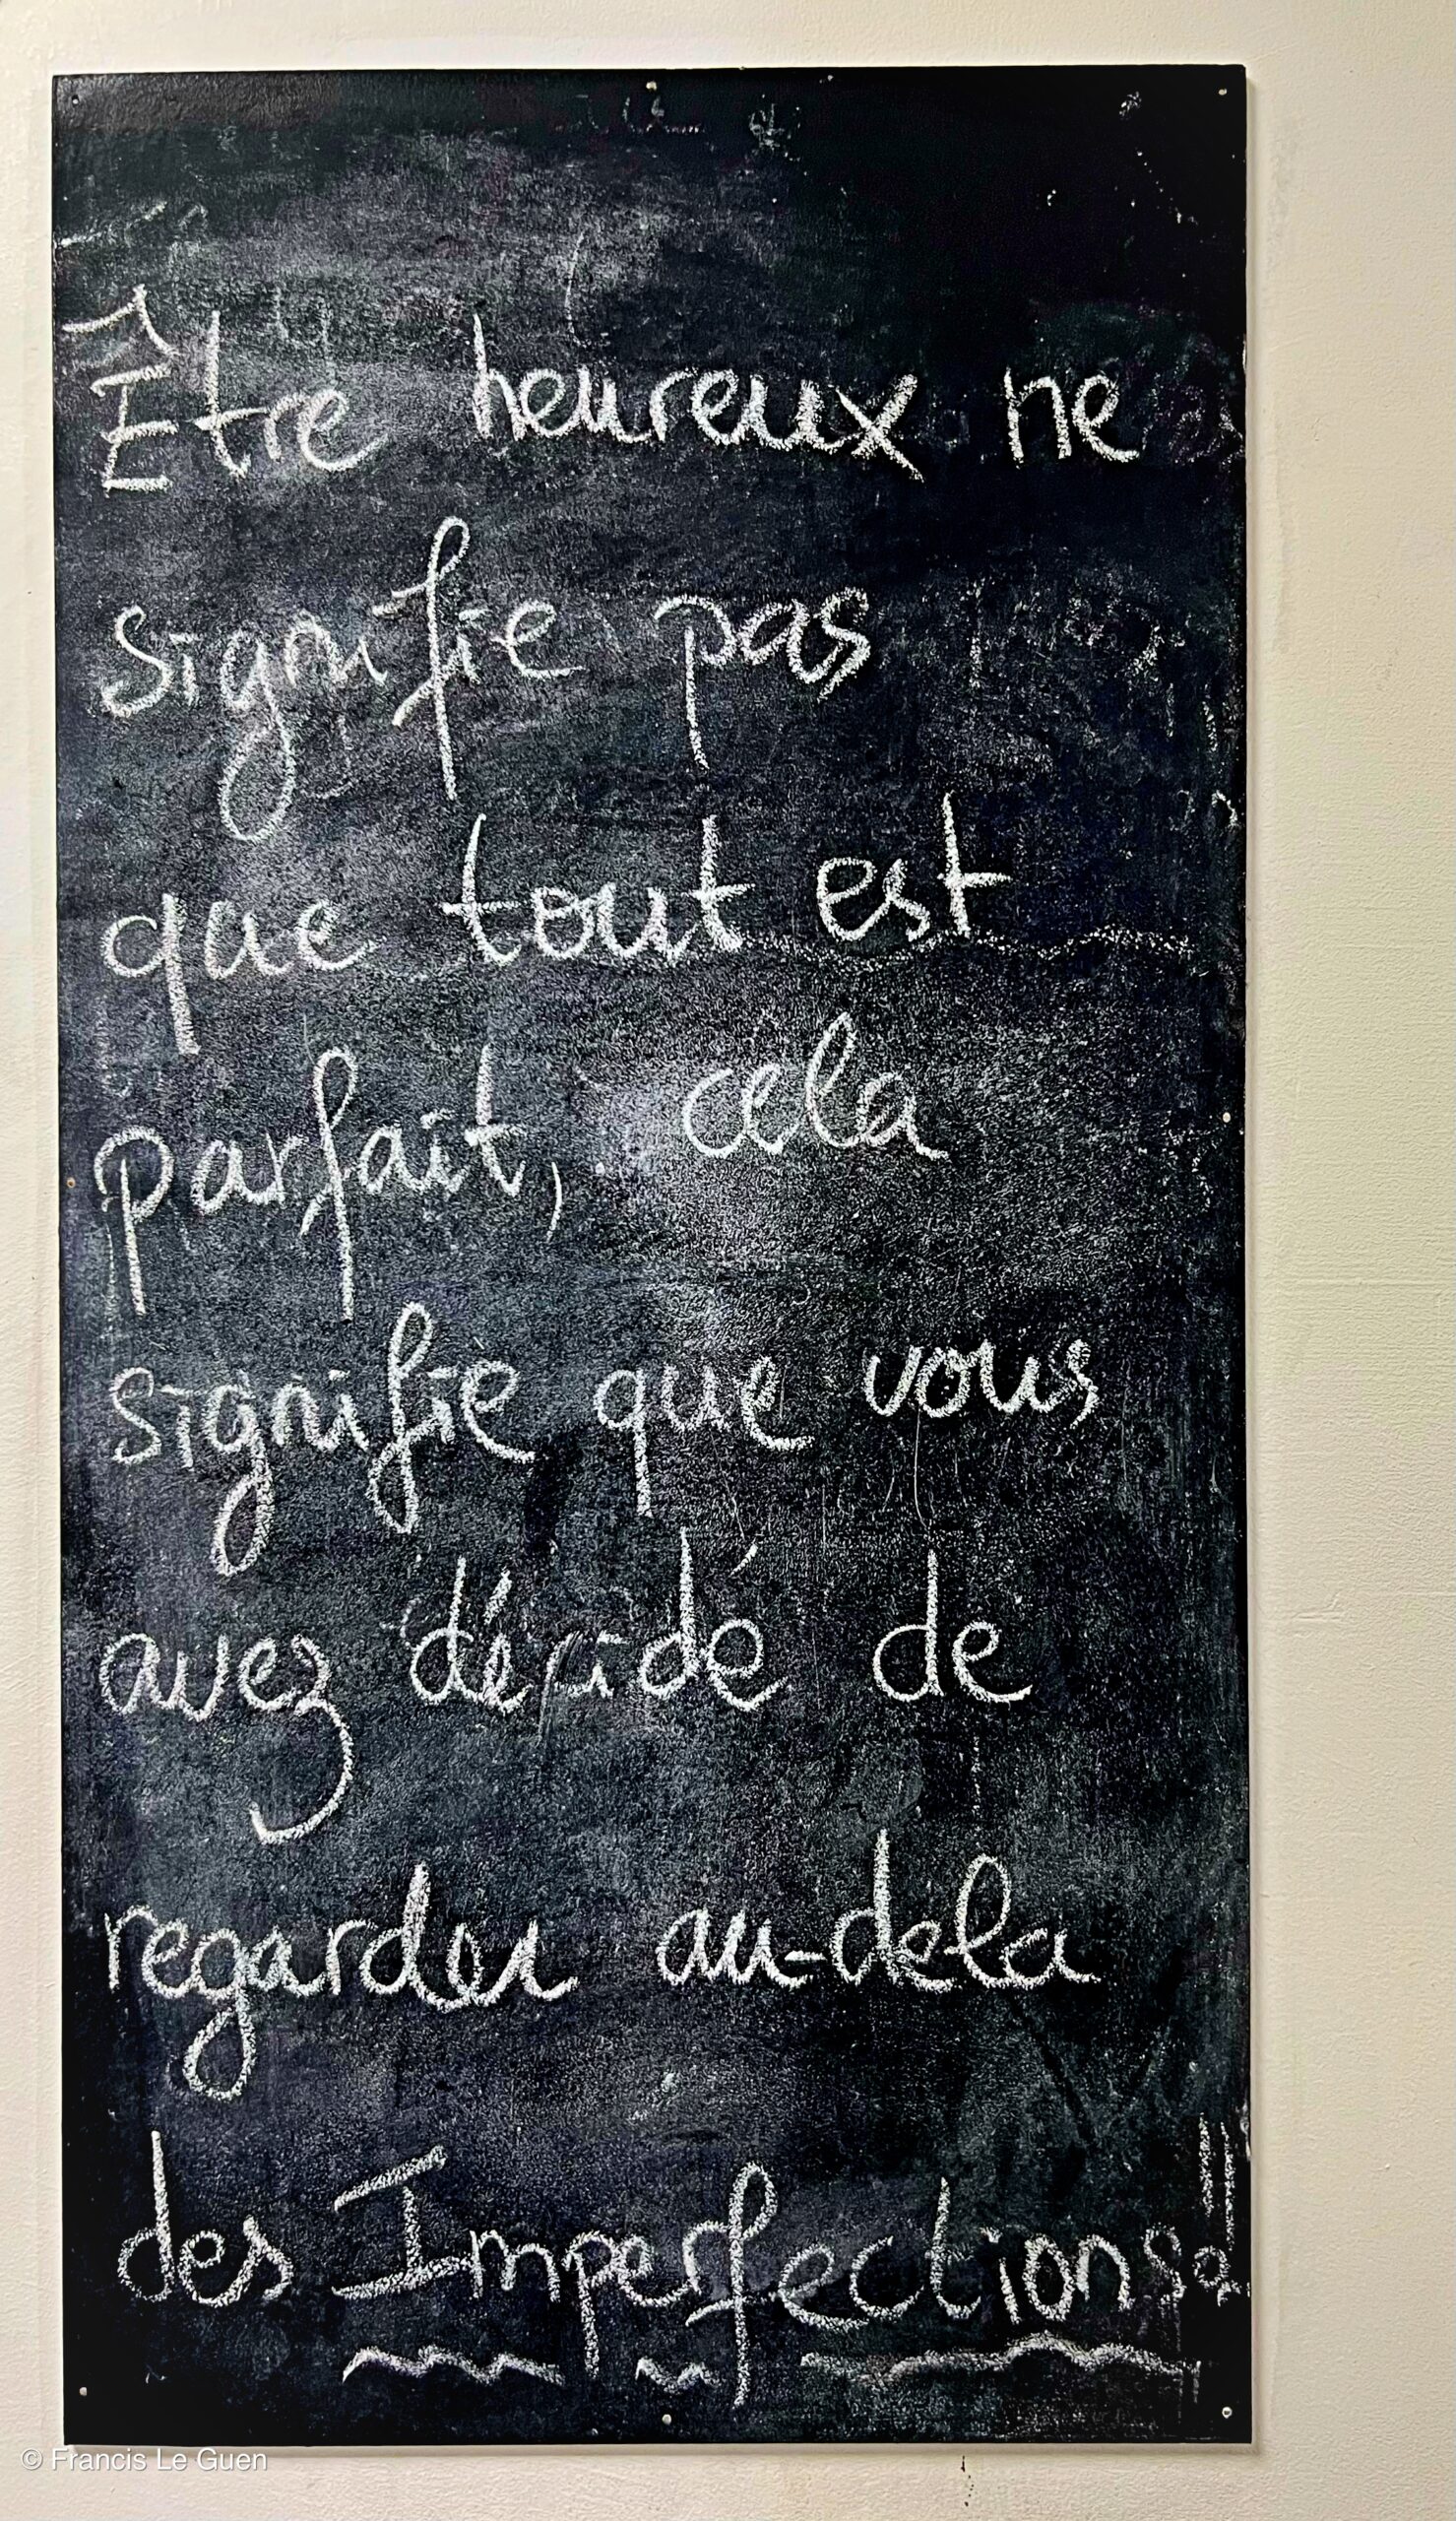 Être heureux ne
signifie pas
que tout est
parfait, cela
signifie que vous
avez décidé de
regarder au-dela
des Imperfections!!
© Francis Le Guen